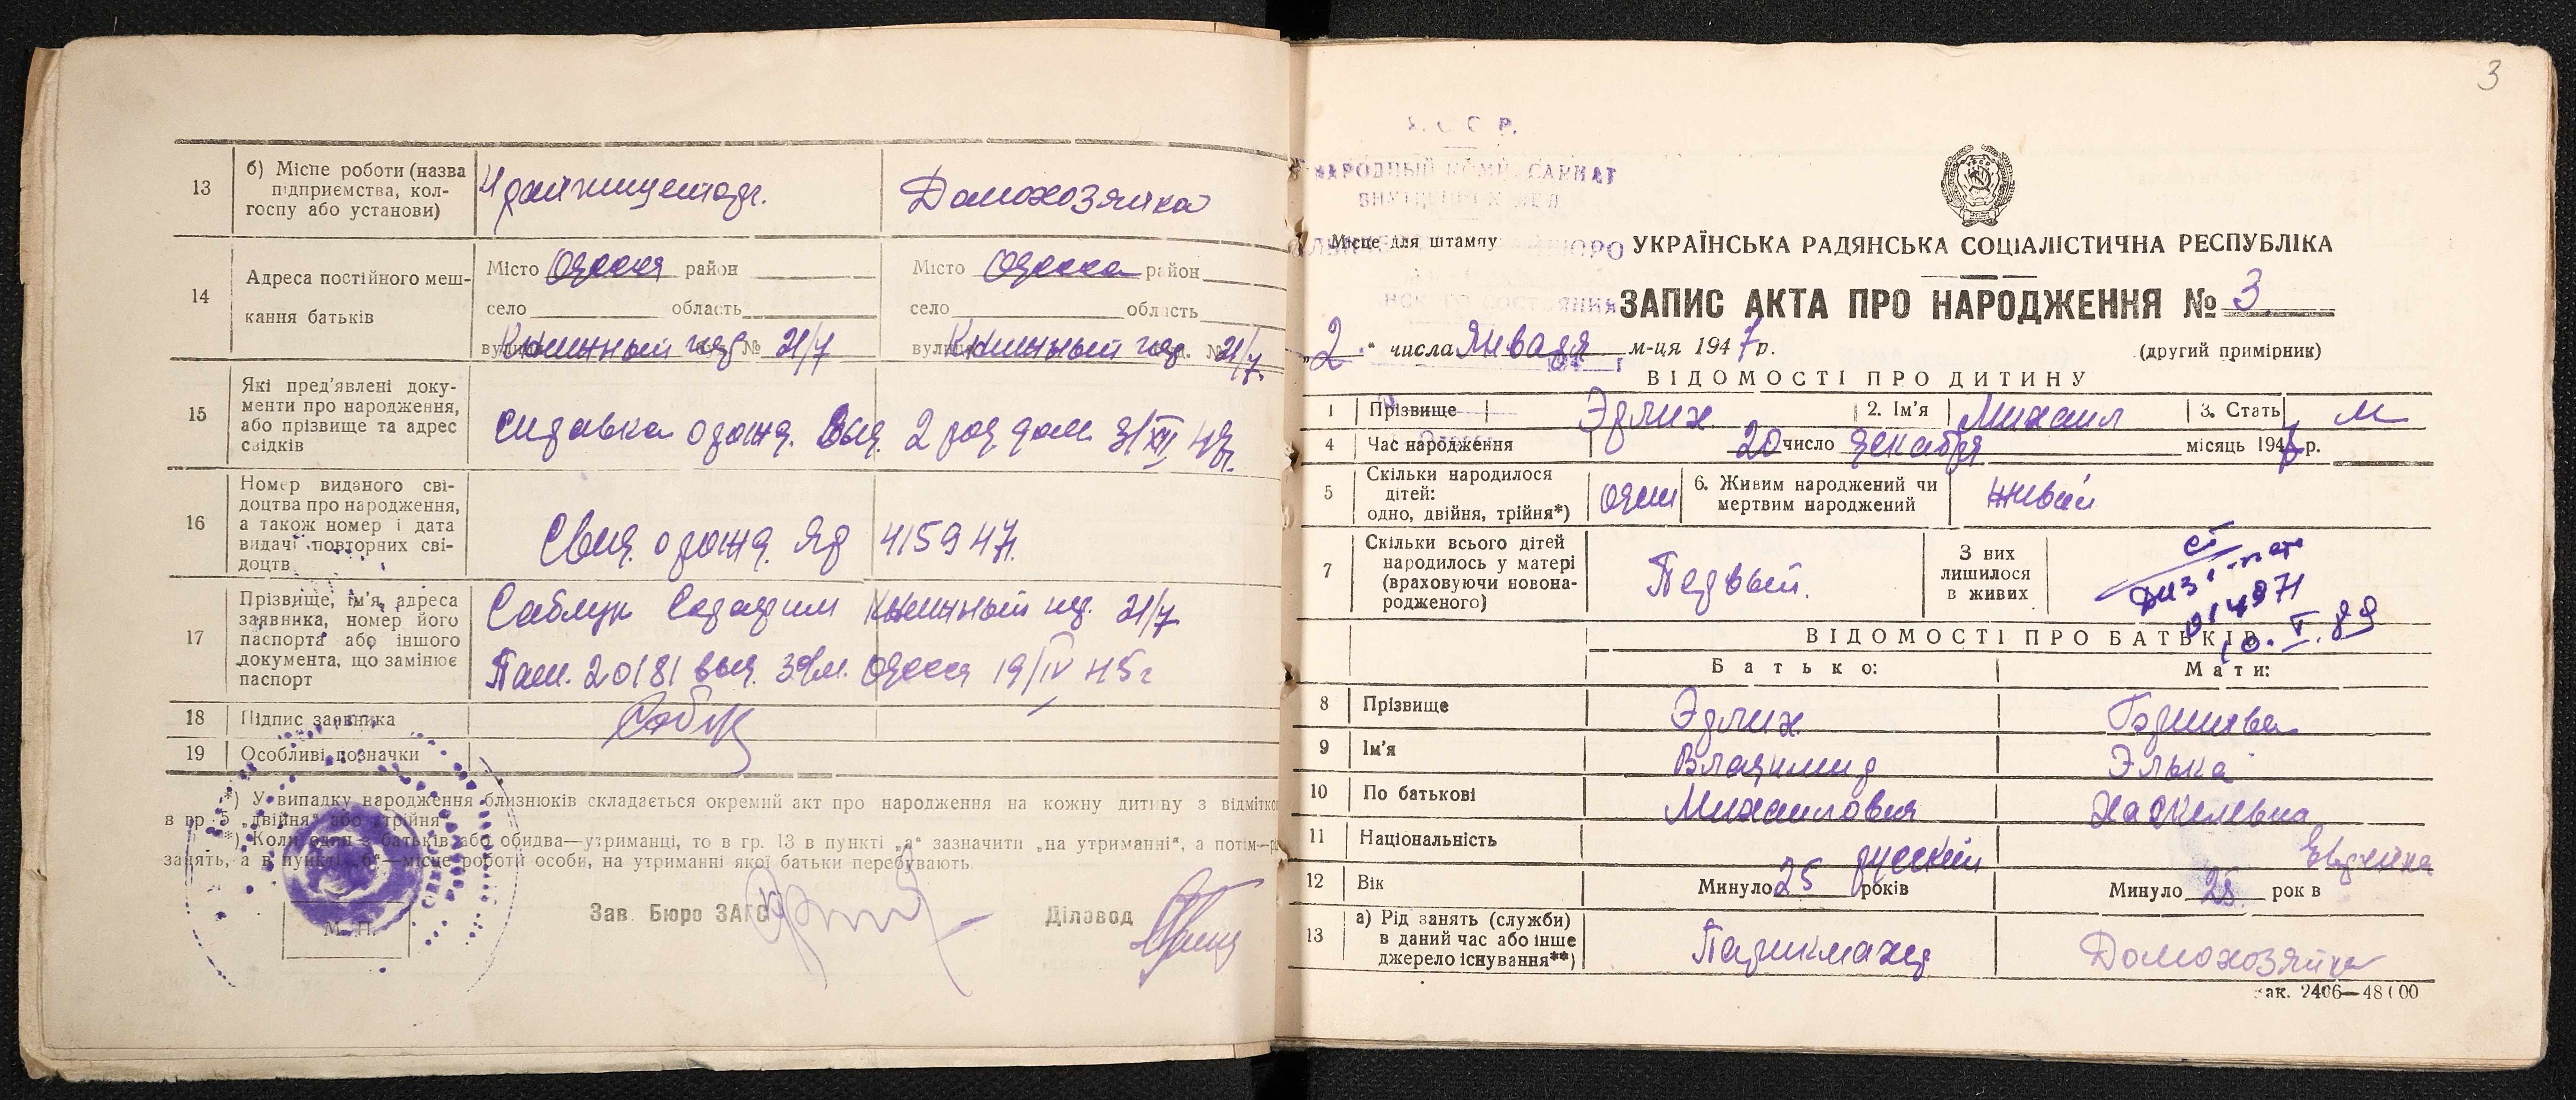 13
б) Місце роботи (назва
підприємства, кол-
госпу або установи)
Домохозяйка
14
Адреса постійного меш-
кання батьків
Місто Одесса район
село область
вулиця № 21/7
Місто Одесса район
село область
вулиця № 21/7
15
Які пред'явлені доку-
менти про народження,
або прізвище та адрес
свідків
справка о рожд. выд. 2 род дом 31/XII
16
Номер виданого сві-
доцтва про народження,
а також номер і дата
видачі повторних сві-
доцтв
Свид. о рожд. 415947
17
Прізвище, ім'я, адреса
заявника, номер його
паспорта або іншого
документа, що замінює
паспорт
21/7
Пасп. 20181 выд. Одесса 19/IV 45 г
18
Підпис заявника
19
Особливі позначки
*) У випадку народження близнюків складається окремий акт про народження на кожну дитину з відмітко
в гр. 5 „двійня" або „трійня"
**) Коли один з батьків або обидва—утриманці, то в гр. 13 в пункті „а" зазначити „на утриманні", а потім—р
занять, а в пункті „б"—місце роботи особи, на утриманні якої батьки перебувають.
М. П.
Зав. Бюро ЗАГС
Діловод
3
С С Р.
НАРОДНЫЙ КОМИССАРИАТ
ВНУТРЕННИХ ДЕЛ
Місце для штампу
БЮРО
СОСТОЯНИЯ
УКРАЇНСЬКА РАДЯНСЬКА СОЦІАЛІСТИЧНА РЕСПУБЛІКА
ЗАПИС АКТА ПРО НАРОДЖЕННЯ № 3
„2" числа Января м-ця 1947 р.
(другий примірник)
ВІДОМОСТІ ПРО ДИТИНУ
1 Прізвище Эрлих 2. Ім'я Михаил 3. Стать М
4 Час народження 20 число декабря місяць 1946 р.
5
Скільки народилося
дітей:
одно, двійня, трійня*)
один
6. Живим народжений чи
мертвим народжений
живой
7
Скільки всього дітей
народилось у матері
(враховуючи новона-
родженого)
Первый.
З них
лишилося
в живих
ВІДОМОСТІ ПРО БАТЬКІВ
Батько: Мати:
8 Прізвище Эрлих
9 Ім'я Владимир Элька
10 По батькові Михайлович Хаскелевна
11 Національність русский Еврейка
12 Вік Минуло 25 років Минуло 25 рок в
13
а) Рід занять (служби)
в даний час або інше
джерело існування**)
Парикмахер
Домохозяйка
Зак. 2406—48000